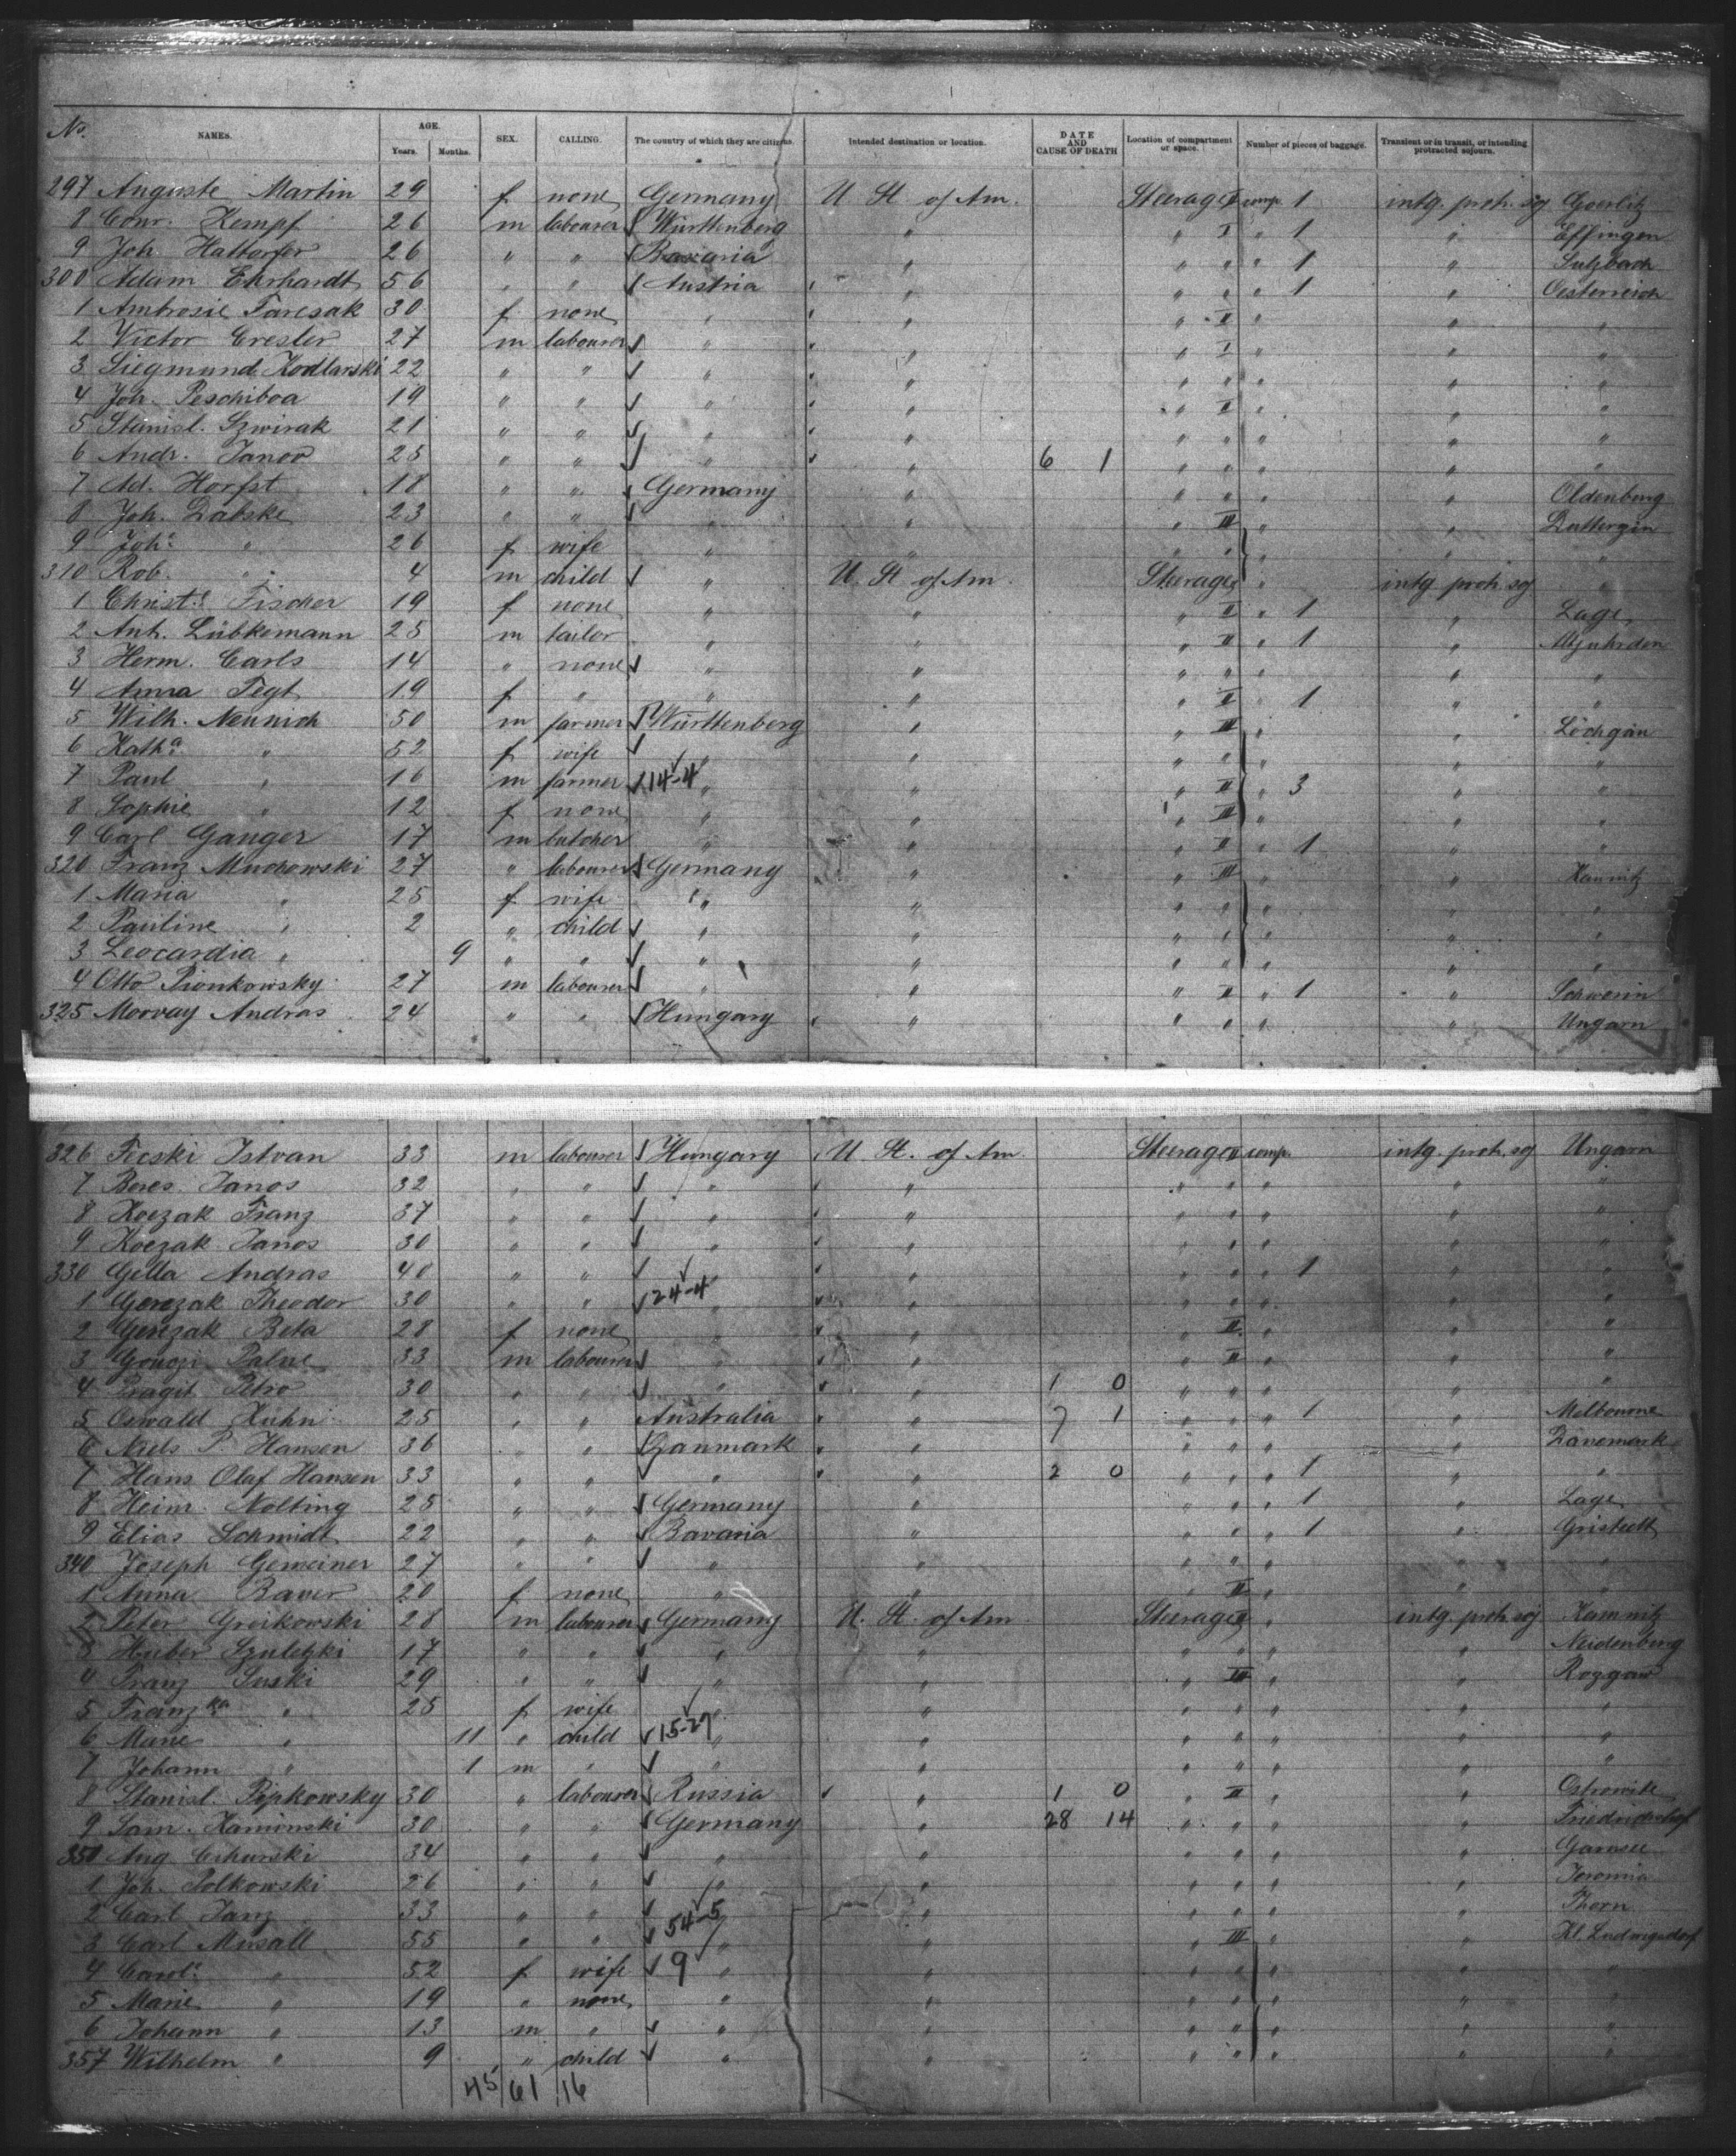 No. NAMES. AGE. Years. Months. SEX. CALLING. The country of which they are citizens. Intended destination or location. DATE AND CAUSE OF DEATH Location of compartment or space. Number of pieces of baggage. Transient or in transit, or intending protracted sojourn.
297 Auguste Martin 29 f none Germany U. St. of Am. Steerage II comp. 1 intg. proh. soj Goerlitz
8 Conr. Kempf 26 m labourer Württenberg " " I " 1 " Effingen
9 Joh. Hattorfer 26 " " Bavaria " " " " 1 " Sulzbach
300 Adam Ehrhardt 56 " " Austria " " " " 1 " Oesterreich
1 Ambrosie Farcsak 30 f none " " " II " " "
2 Victor Cresler 27 m labourer " " " I " " "
3 Siegmund Kodlarski 22 " " " " " " " " "
4 Joh. Peschiboa 19 " " " " " II " " "
5 Stanisl. Szwirak 21 " " " " " " " " "
6 Andr. Janov 25 " " " " 6 1 " " " " "
7 Ad. Horfst 18 " " Germany " " " " " Oldenburg
8 Joh. Dabske 23 " " " " " III " " 
9 Joh.a " 26 f wife " " " " " " "
310 Rob. " 4 m child " U. St. of Am. Steerage " intg proh. soj "
1 Christ.e Fischer 19 f none " " " II " 1 " Lage
2 Anh. Lübkemann 25 m tailor " " " II " 1 "
3 Herm. Carls 14 " none " " " " " " "
4 Anna Tegt 19 f " " " " II " 1 " "
5 Wilh. Neunich 50 m farmer Württenberg " " III " " Löchgau
6 Kath.a " 52 f wife " " " " " " "
7 Paul " 16 m farmer 14-4 " " " II " 3 " "
8 Sophie " 12 f none " " " III " " "
9 Carl Ganger 17 m butcher " " " II " 1 " "
320 Franz Muchowski 27 " labourer Germany " " III " " Kamnitz
1 Maria " 25 f wife " " " " " " "
2 Pauline " 2 " child " " " " " " "
3 Leocardia " 9 " " " " " " " " "
4 Otto Pionkowsky 27 m labourer " " " II " 1 " Schwerin
325 Morvay Andras 24 " " Hungary " " " " " Ungarn
326 Fecski Istvan 33 m labourer Hungary U. St. of Am. Steerage II comp. intg. proh. soj Ungarn
7 Beres Janos 32 " " " " " " " " "
8 Koczak Franz 37 " " " " " " " " "
9 Koczak Janos 30 " " " " " " " " "
330 Gella Andras 40 " " " " " " " 1 " "
1 Gerezak Theodor 30 " " 24-4 " " " " " " "
2 Gerezak Beta 28 f none " " " II " " "
3 Gouozi Palne 33 m labourer " " " II " " "
4 Pragit Petro 30 " " " " 1 0 " " " " "
5 Oswald Kuhn 25 " " Australia " 7 1 " " " 1 " Melbourne
6 Niels P. Hansen 36 " " Danmark " " " " " Dänemark
7 Hans Olaf Hansen 33 " " " " 2 0 " " " 1 " "
8 Heinr. Nolting 25 " " Germany " " " " 1 " Lage
9 Elias Schmidt 22 " " Bavaria " " " " 1 " Gristedt
340 Joseph Gemeiner 27 " " " " " " " " "
1 Anna Bauer 20 f none " " " II " " "
2 Peter Greikowski 28 m labourer Germany U. St. of Am Steerage II " intg. proh. soj Kamnitz
3 Huber Szuletzki 17 " " " " " " " " Neidenburg
4 Franz Suski 29 " " " " " III " " Rozgaw
5 Franz.ka " 25 f wife " " " " " " "
6 Marie " 11 " child 15-27 " " " " " " "
7 Johann " 1 m " " " " " " " "
8 Stanisl. Pipkowsky 30 " labourer Russia " 1 0 " II " " Ostrowite
9 Sam. Kaminski 30 " " Germany " 28 14 " " " " Friedrichshof
350 Aug. Czhurski 34 " " " " " " " " Garnsee
1 Joh. Polkowski 26 " " " " " " " " Jeromia
2 Carl Janz 33 " " " " " " " " Thorn
3 Carl Musall 55 " " 54-5 " " " III " " Kl. Ludwigsdorf
4 Carol.e " 52 f wife 9 " " " " " " "
5 Marie " 19 " none " " " " " " "
6 Johann " 13 m " " " " " " " "
357 Wilhelm " 9 " child " " " " " " "
45 61 16